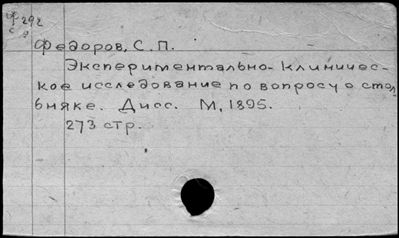 Ф 292
Федоров, С. П.
Экспериментально-клиничес-
кое исследование по вопросу о стол
бняке. Дисс. М, 1895.
273 стр.